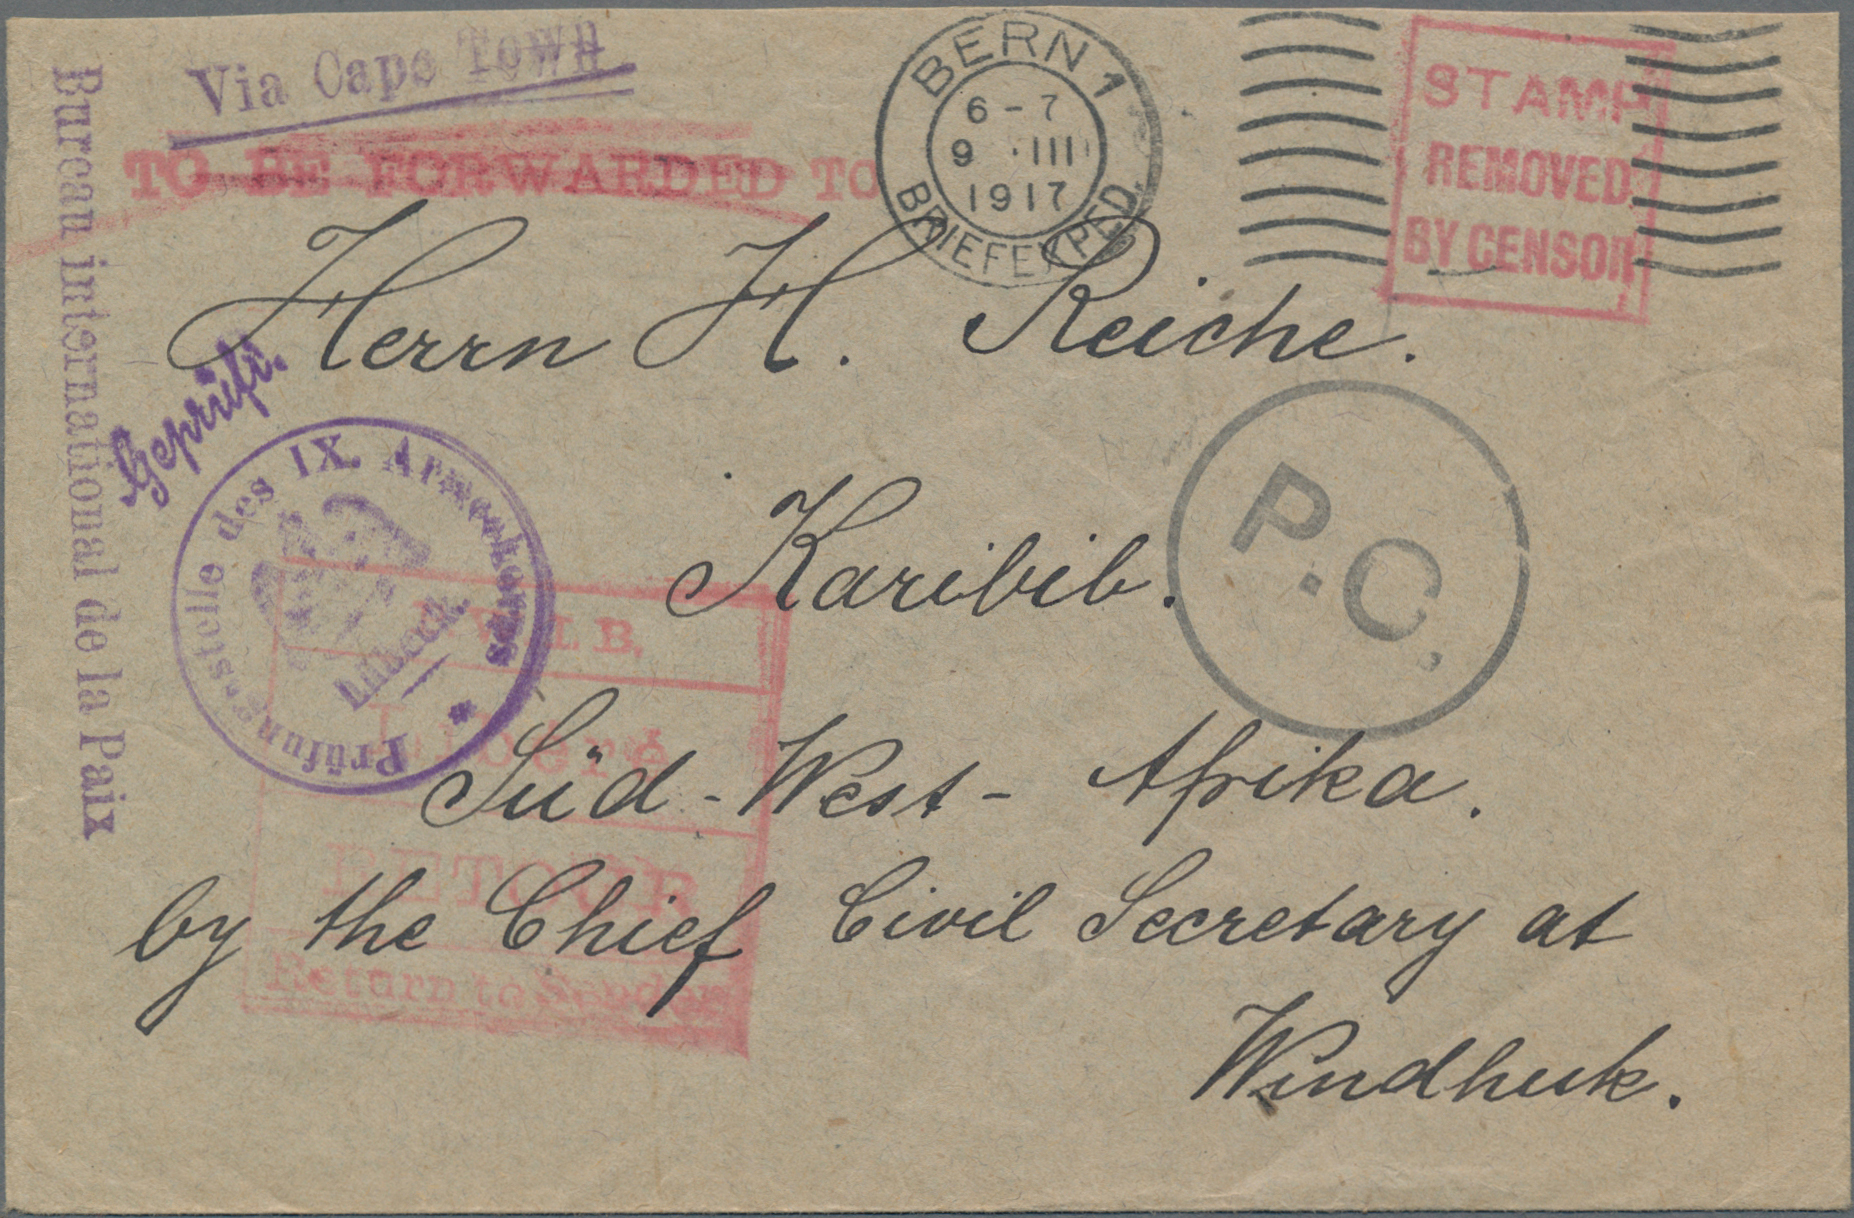 Via Cape Town
TO BE FORWARDED TO
BERN 1
6-7
9 · III
1917
BRIEFEXPED.
STAMP
REMOVED
BY CENSOR
Bureau international de la Paix
Herrn H. Reiche.
Geprüft.
Prüfungsstelle des IX. Armeekorps
Lübeck.
P.C.
Karibib.
B.
Süd-West-Afrika.
Libéré
RETOUR
by the Chief Civil Secretary at
Return to Sender
Windhuk.